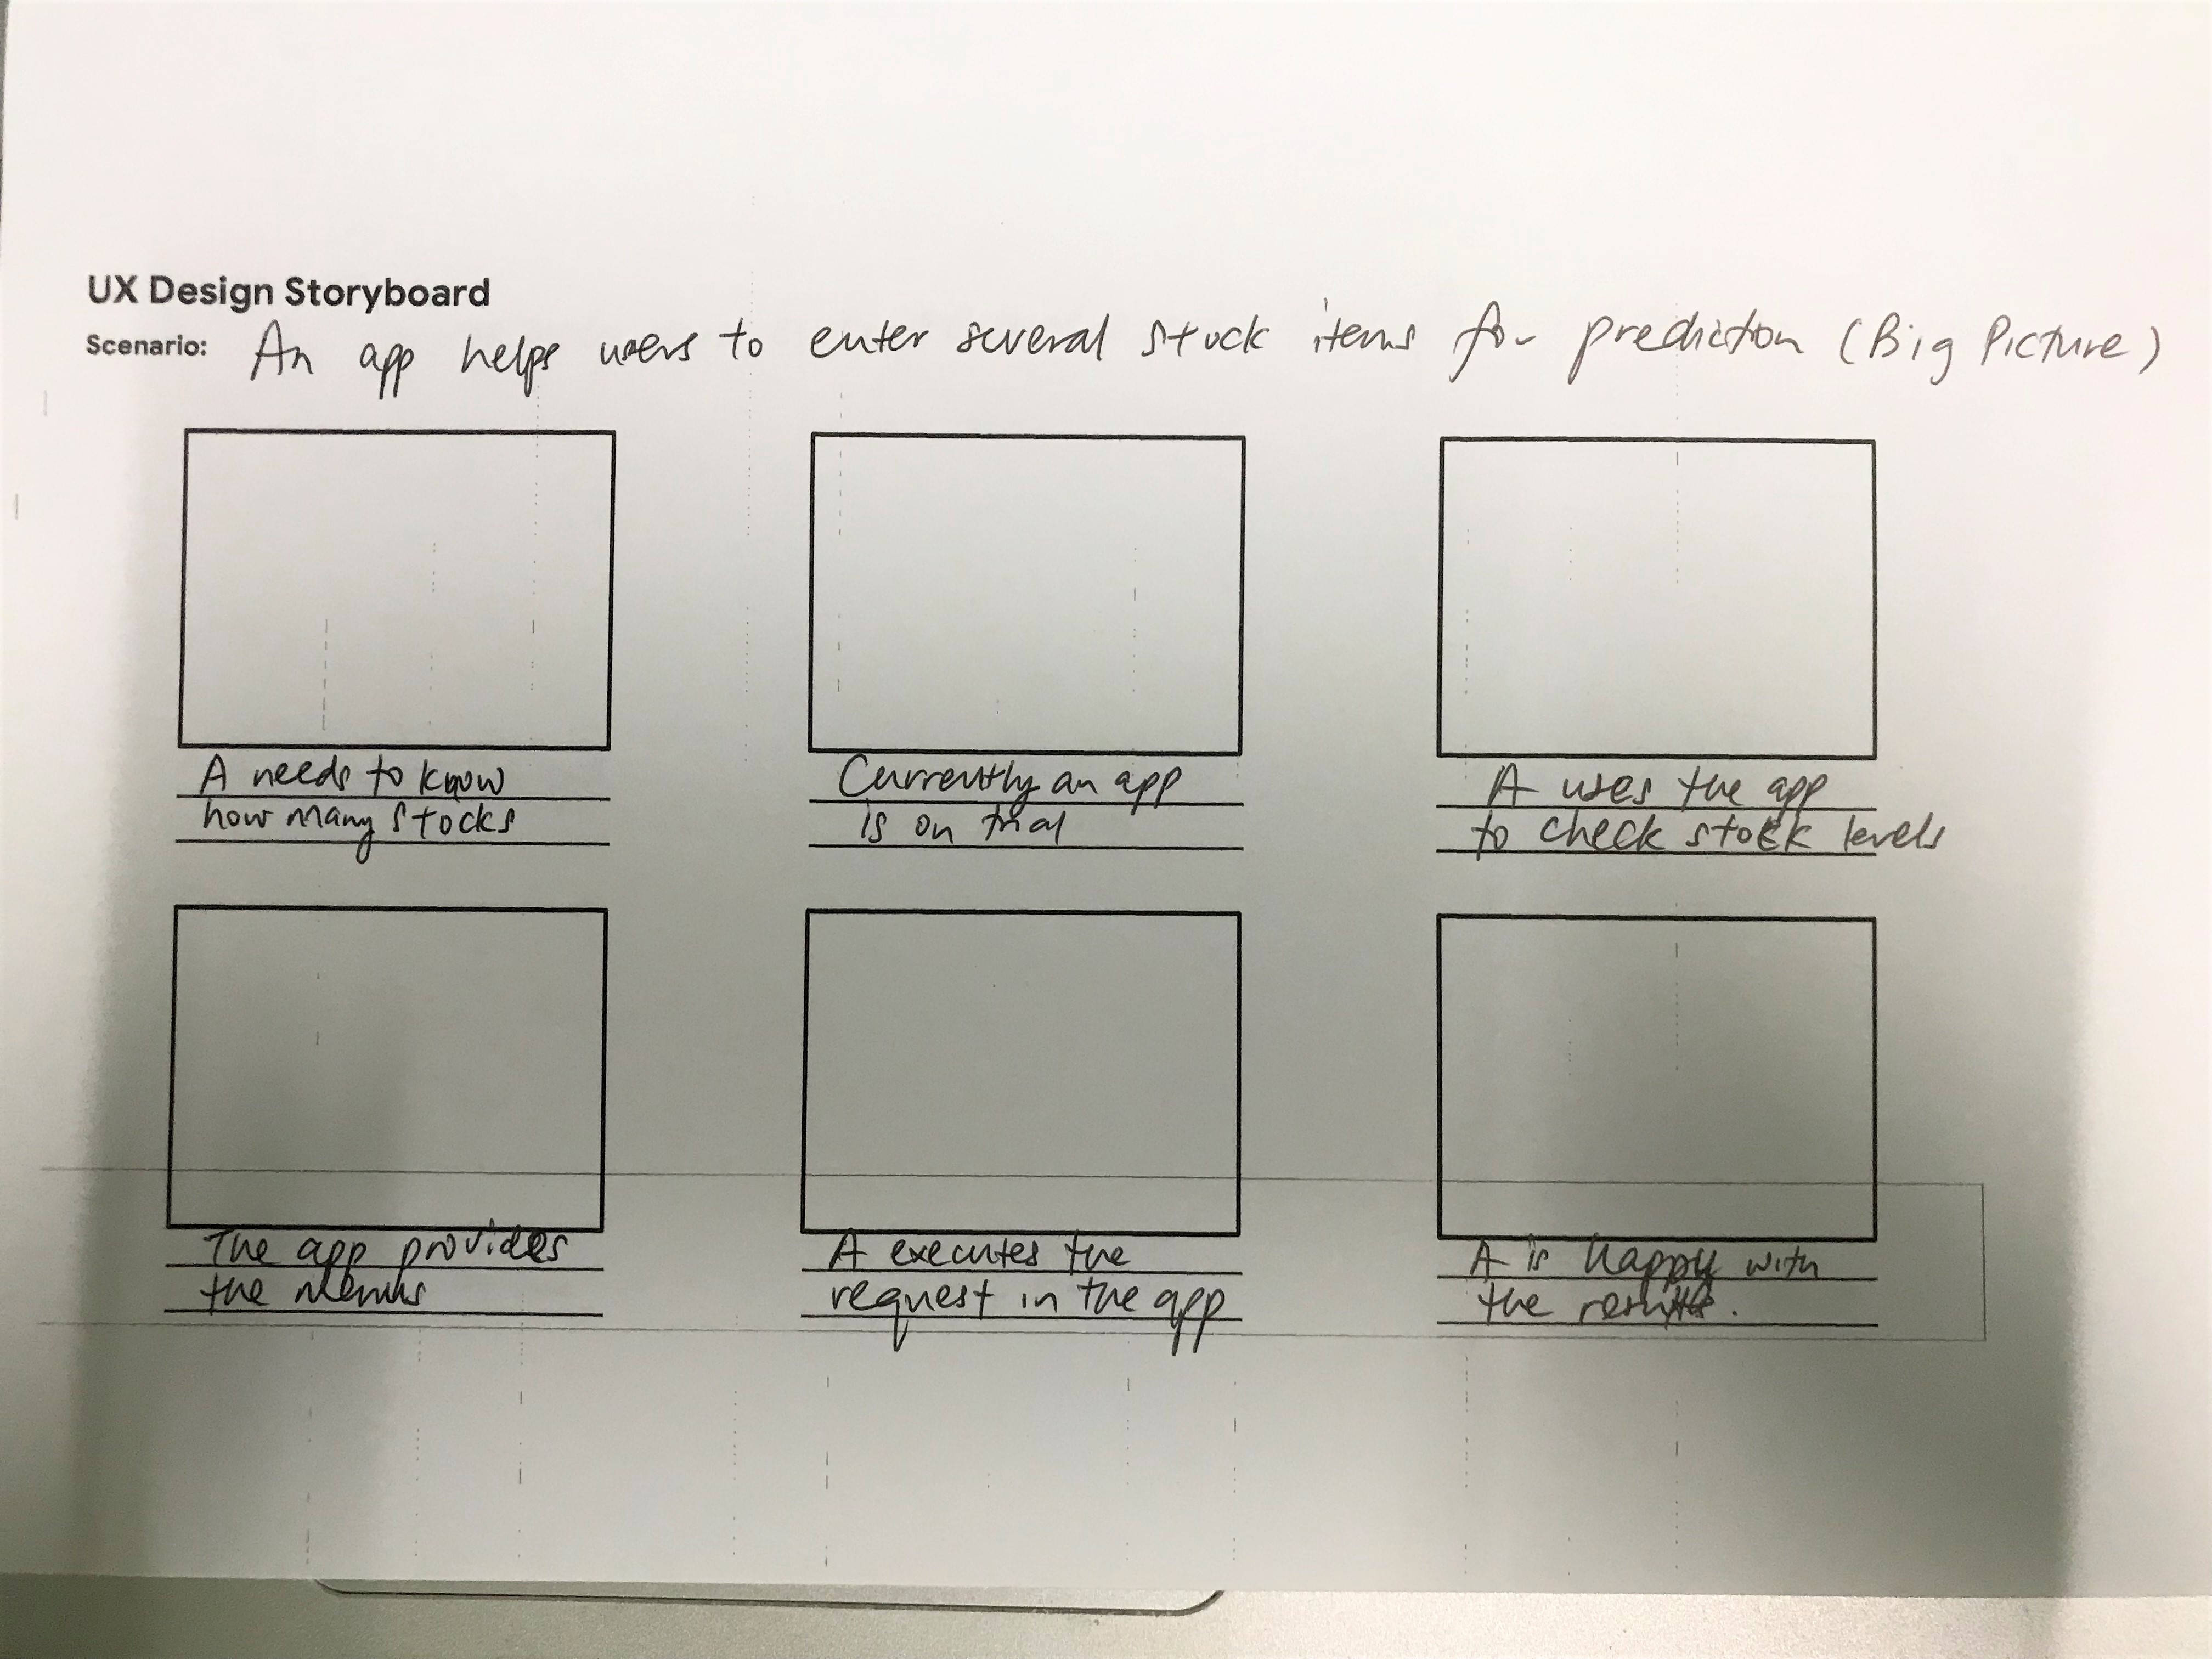 UX Design Storyboard
Scenario: An app helps users to enter several stock items for prediction (Big Picture)
A needs to know
how many stocks
Currently an app
is on trial
A uses the app
to check stock levels
The app provides
the menus
A executes the
request in the app
A is happy with
the results.